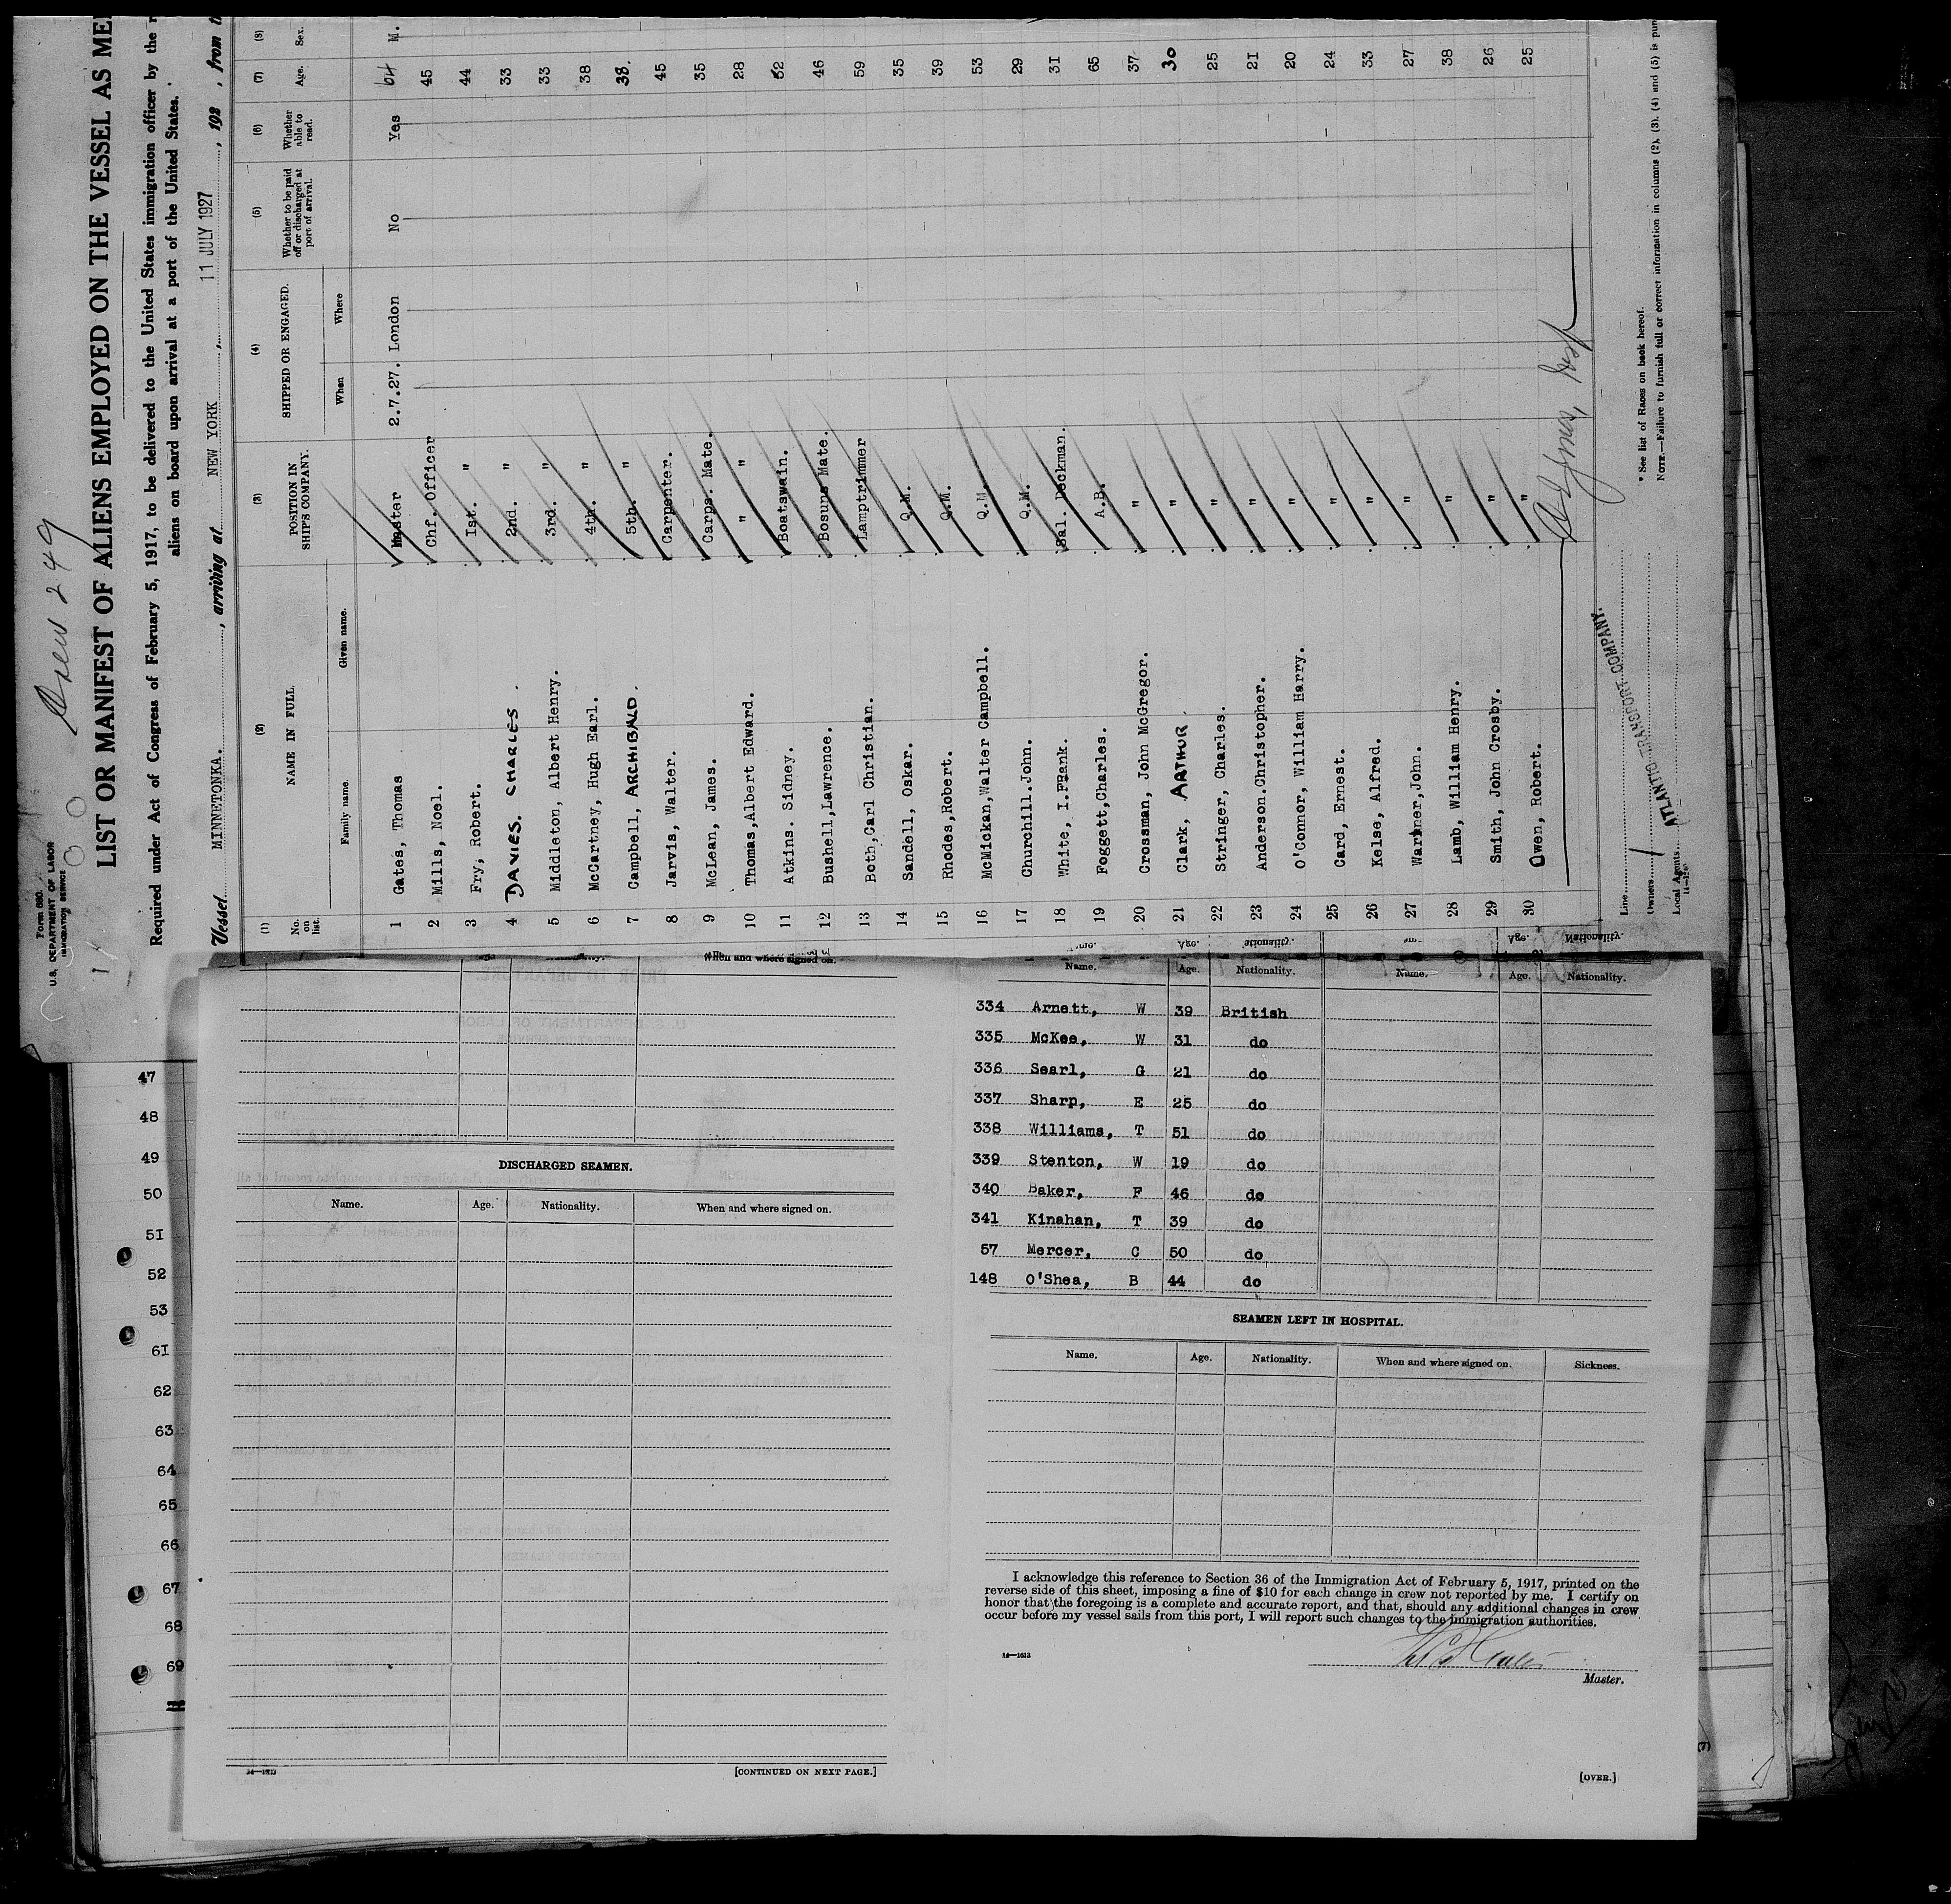 Form 680
U.S. DEPARTMENT OF LABOR
IMMIGRATION SERVICE
Crew 249
LIST OR MANIFEST OF ALIENS EMPLOYED ON THE VESSEL AS ME
Required under Act of Congress of February 5, 1917, to be delivered to the United States immigration officer by the r
aliens on board upon arrival at a port of the United States.
Vessel MINNETONKA. , arriving at NEW YORK , 11 JULY 1927 , 192 , from t
(1) (2) (3) (4) (5) (6) (7) (8)
No. on list. NAME IN FULL POSITION IN SHIP'S COMPANY. SHIPPED OR ENGAGED. Whether to be paid off or discharged at port of arrival. Whether able to read. Age. Sex.
Family name. Given name. When Where
1 Gates, Thomas Master 2.7.27. London No Yes 64 M.
2 Mills, Noel. Chf. Officer 45
3 Fry, Robert. Ist. " 44
4 DAVIES. CHARLES. 2nd. " 33
5 Middleton, Albert Henry. 3rd. " 33
6 McCartney, Hugh Earl. 4th. " 38
7 Campbell, ARCHIBALD. 5th. " 38.
8 Jarvis, Walter. Carpenter. 45
9 McLean, James. Carps. Mate. 35
10 Thomas,Albert Edward. " " 28
11 Atkins. Sidney. Boatswain. 52
12 Bushell,Lawrence. Bosuns Mate. 46
13 Beth,Carl Christian. Lamptrimmer 59
14 Sandell, Oskar. Q.M. 35
15 Rhodes,Robert. Q.M. 39
16 McMickan,Walter Campbell. Q.M. 53
17 Churchill.John. Q.M. 29
18 White, I.Frank. Sal. Deckman. 31
19 Foggett,Charles. A.B. 65
20 Crossman, John McGregor. " 37
21 Clark, ARTHUR. " 30
22 Stringer, Charles. " 25
23 Anderson.Christopher. " 21
24 O'Connor, William Harry. " 20
25 Card, Ernest. " 24
26 Kelse, Alfred. " 33
27 Warmer,John. " 27
28 Lamb, William Henry. " 38
29 Smith, John Crosby. " 26
30 Owen, Robert. " 25
Line
Owners
Local Agents
ATLANTIC TRANSPORT COMPANY.
* See list of Races on back hereof.
NOTE.—Failure to furnish full or correct information in columns (2), (3), (4) and (5) is pun
When and where signed on.
DISCHARGED SEAMEN.
Name. Age. Nationality. When and where signed on.
14—1613
[CONTINUED ON NEXT PAGE.]
Name. Age. Nationality. Name. Age. Nationality.
334 Arnett, W 39 British
335 McKee, W 31 do
336 Searl, G 21 do
337 Sharp, E 25 do
338 Williams, T 51 do
339 Stenton, W 19 do
340 Baker, F 46 do
341 Kinahan, T 39 do
57 Mercer, C 50 do
148 O'Shea, B 44 do
SEAMEN LEFT IN HOSPITAL.
Name. Age. Nationality. When and where signed on. Sickness.
I acknowledge this reference to Section 36 of the Immigration Act of February 5, 1917, printed on the
reverse side of this sheet, imposing a fine of $10 for each change in crew not reported by me. I certify on
honor that the foregoing is a complete and accurate report, and that, should any additional changes in crew
occur before my vessel sails from this port, I will report such changes to the immigration authorities.
14—1613
Master.
[OVER.]
47
48
49
50
51
52
53
61
62
63
64
65
66
67
68
69